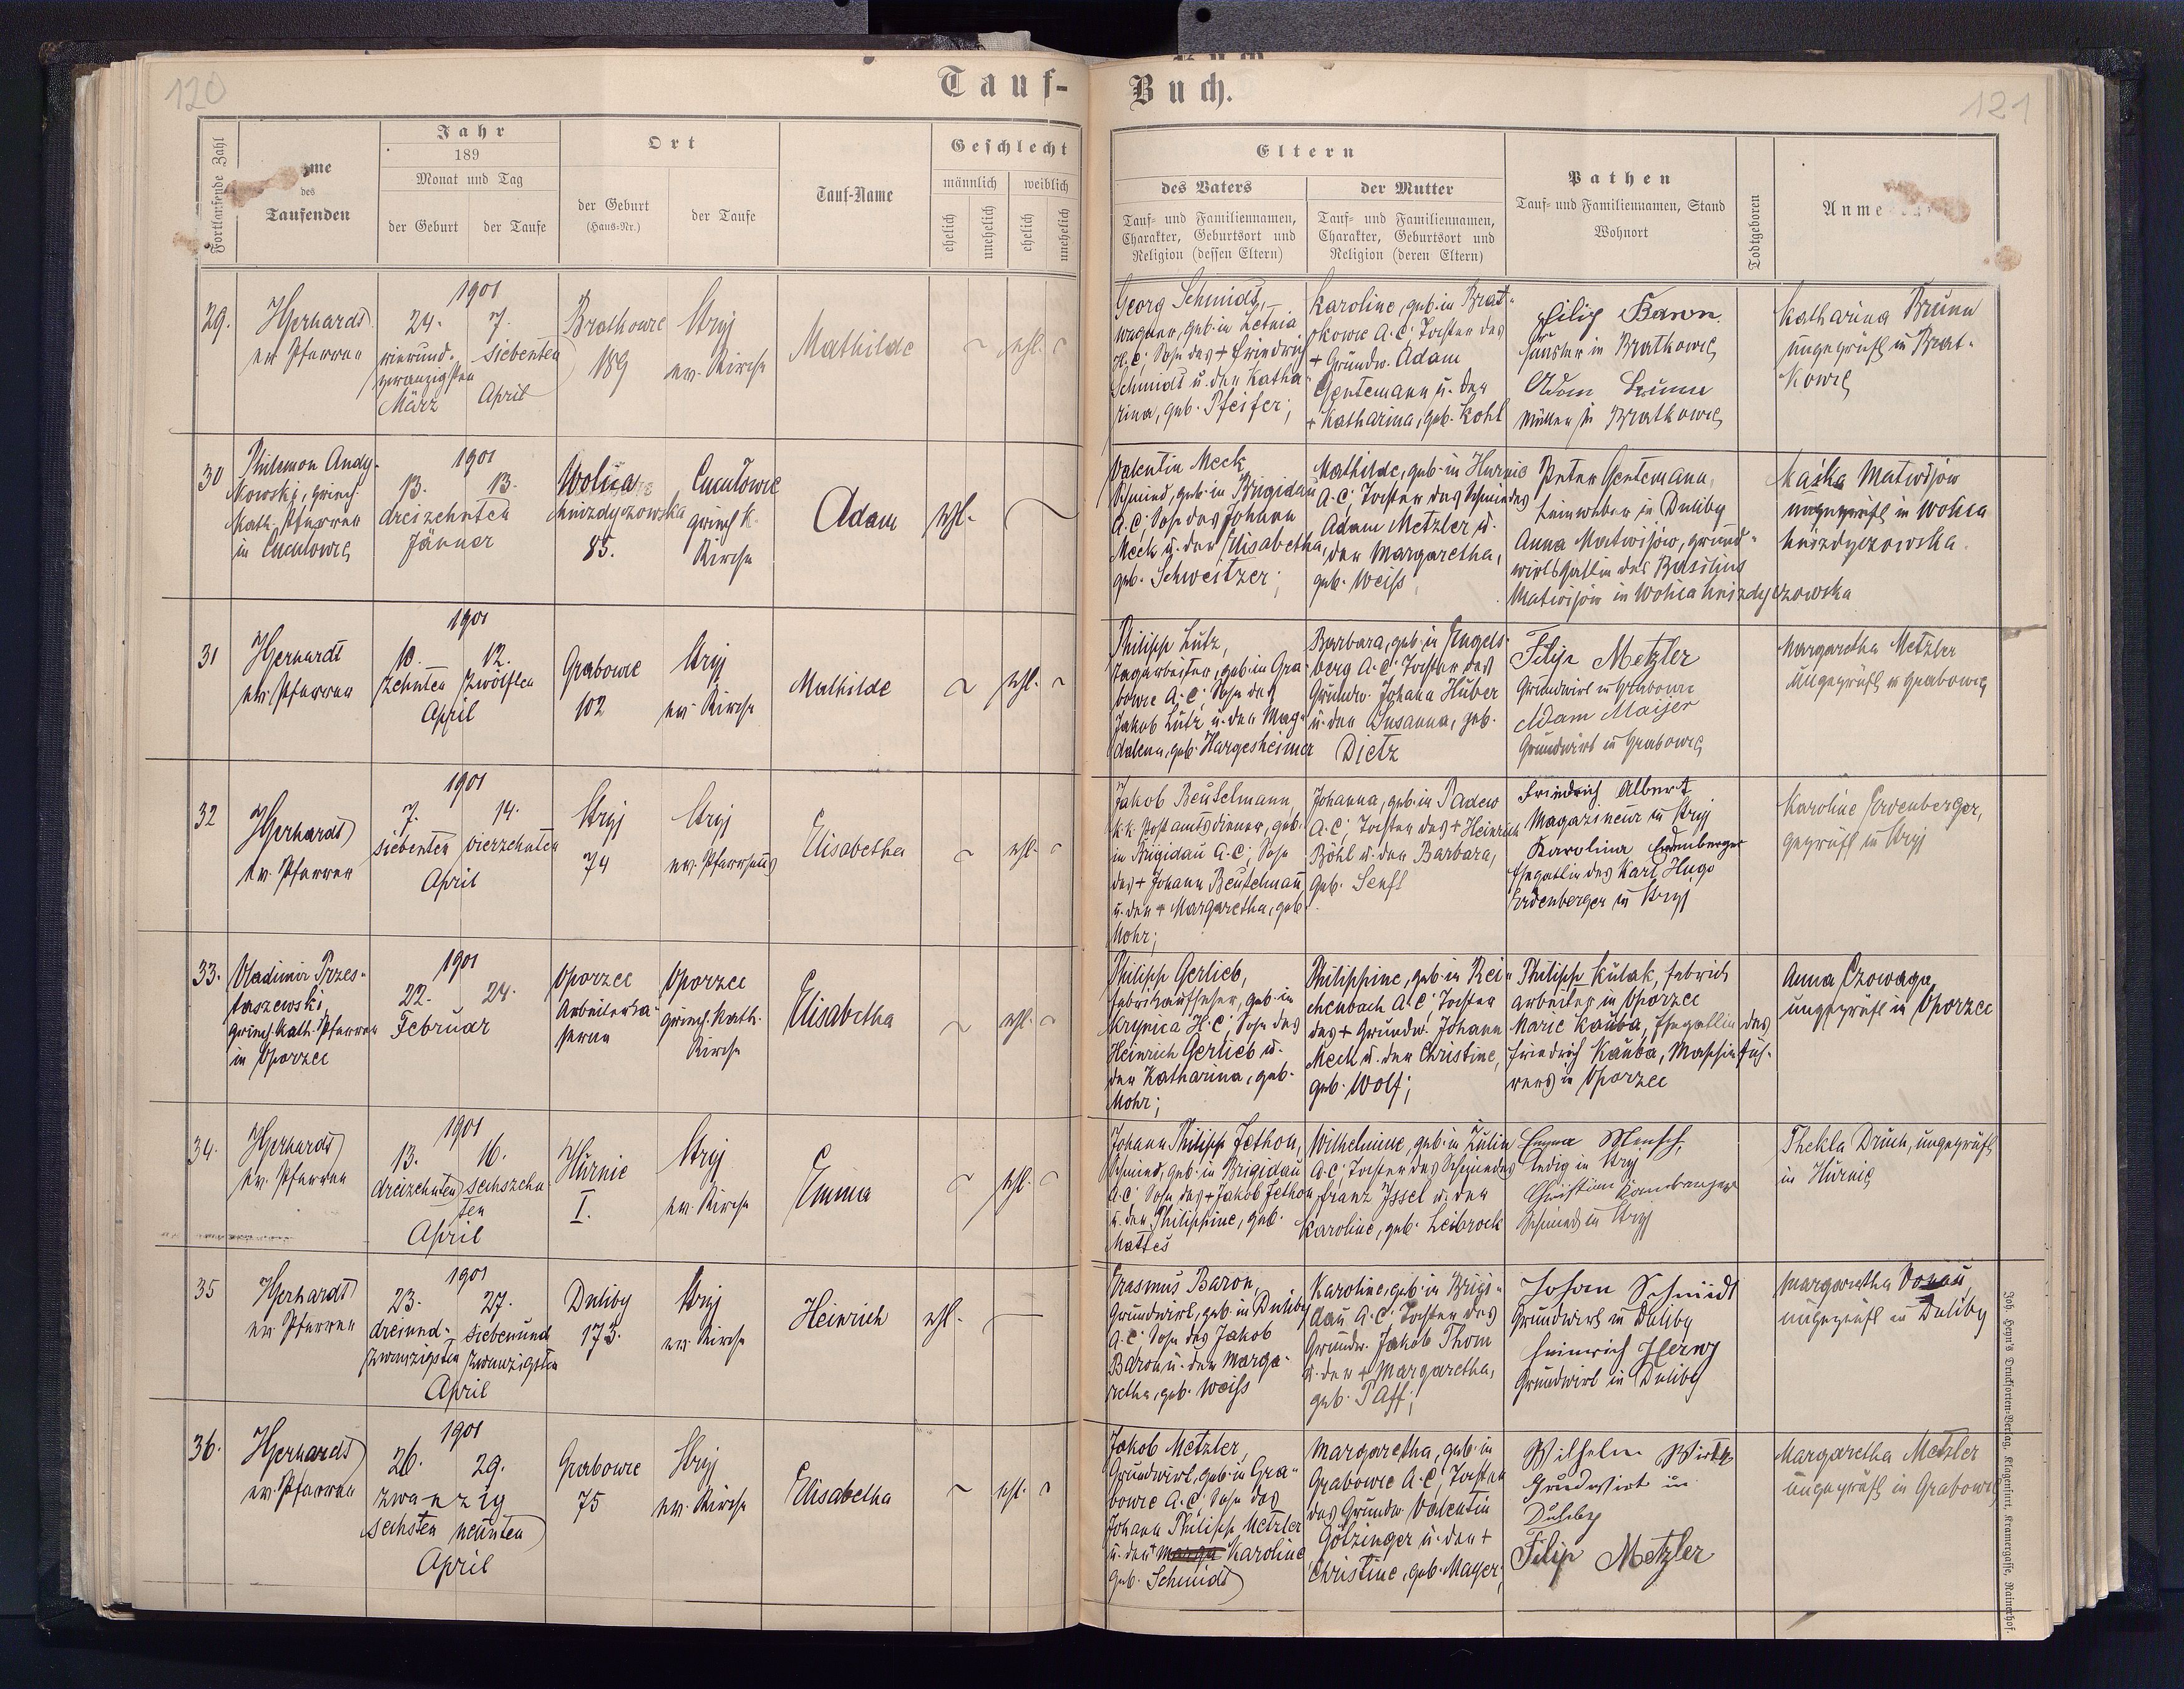 120
Tauf-
Buch.
121
Fortlaufende Zahl
me
des
Taufenden
Jahr
189
Monat und Tag
der Geburt
der Taufe
Ort
der Geburt
(Haus-Nr.)
der Taufe
Tauf-Name
Geschlecht
männlich
weiblich
ehelich
unehelich
ehelich
unehelich
Eltern
des Vaters
Tauf- und Familiennamen,
Charakter, Geburtsort und
Religion (dessen Eltern)
der Mutter
Tauf- und Familiennamen,
Charakter, Geburtsort und
Religion (deren Eltern)
Pathen
Tauf- und Familiennamen, Stand
Wohnort
Todtgeboren
Anme
29.
ev. Pfarrer
1901
24.
vierund-
zwanzigsten
März
7.
siebenten
April
Brathowce
189
Stryj
ev. Kirche
Mathilde
ehl.
Georg Schmidt,
Wagner, geb. in Letnia
H.C; Sohn des + Friedrich
Schmidt u. der Katha-
rina, geb. Pfeifer;
Karoline, geb. in Brat-
kowce A.C; Tochter des
+ Grundw. Adam
Gentemann u. der
+ Katharina, geb. Kohl
Filip Baron
in Brathowce
Adam
in Brathowce
Katharina Brunn
ungeprüft in Brat-
kowce
30
Philemon Andy-
kowski, griech.
kath. Pfarrer
in Cuculowce
1901
13.
13.
dreizehnten
Jänner
Wolica
hnizdyczowska
85.
Cuculowce
griech. k.
Kirche
Adam
ehl.
Valentin Meck
Schmied, geb. in Brigidau
A.C; Sohn des Johann
Meck u. der Elisabetha,
geb. Schweitzer;
Mathilde, geb. in Hurnie
A.C; Tochter des Schmiedes
Adam Metzler u.
der Margaretha,
geb. Weiss
Peter Gentemann,
Leinweber in Duliby
Anna Matwijów, Grund-
wirtsgattin des Basilius
Matwijów in Wolica hnizdyczowska
Maśka Matwijów
ungeprüft in Wolica
hnizdyczowska.
31
ev. Pfarrer
1901
10.
zehnten
12.
zwölften
April
Grabowce
102
Stryj
ev. Kirche
Mathilde
ehl.
Philipp Lutz,
Tagarbeiter, geb. in Gra-
bowce A.C; Sohn des
Jakob Lutz u. der Mag-
dalena, geb. Hargesheimer
Barbara, geb. in Engels-
berg A.C; Tochter des
Grundw. Johann Huber
u. der Susanna, geb.
Dietz
Filip Metzler
Grundwirt in Grabowce
Adam Maijer
Grundwirt in Grabowce
Margaretha Metzler
ungeprüft in Grabowce
32
ev. Pfarrer
1901
7.
siebenten
14.
vierzehnten
April
Stryj
74
Stryj
ev. Pfarrhaus
Elisabetha
ehl.
Jakob Beutelmann,
k.k. Postamtsdiener, geb.
in Brigidau A.C; Sohn
des + Johann Beutelmann
u. der + Margaretha, geb.
Mohr;
Johanna, geb. in Padew
A.C; Tochter des + Heinrich
Böhl u. der Barbara,
geb. Senft
Friedrich Albert
Magazineur in Stryj
Karolina Erdenberger
Ehegattin des Karl Hugo
Erdenberger in Stryj
Karoline Erdenberger,
geprüft in Stryj
33.
Vladimir Przes-
taszewski,
griech. kath. Pfarrer
in Oporzec
1901
22.
24.
Februar
Oporzec
Arbeiterka-
serne
Oporzec
griech. kath.
Kirche
Elisabetha
ehl.
Philipp Gerlieb,
Fabriksaufseher, geb. in
Krynica H.C; Sohn des
Heinrich Gerlieb u.
der Katharina, geb.
Mohr;
Philippine, geb. in Rei-
chenbach A.C; Tochter
des + Grundw. Johann
Mech u. der Christine,
geb. Wolf;
Philipp Kulak, Fabrics
arbeiter in Oporzec
Marie Kauba, Ehegattin des
Friedrich Kauba, Maschinfüh-
rers in Oporzec
Anna Czowaga
ungeprüft in Oporzec
34.
ev. Pfarrer
1901
13.
dreizehnten
16.
sechszehn
ten
April
Hurnie
I.
Stryj
ev. Kirche
Emma
ehl.
Johann Philipp Jethon,
Schmied, geb. in Brigidau
A.C; Sohn des + Jakob Jethon
u. der Philippine, geb.
Mattes
Wilhelmine, geb. in Zulin
A.C; Tochter des Schmiedes
Franz Issel u. der
Karoline, geb. Leibrock
Emma Mensch,
ledig in Stryj
Christian
Schmied in Stryj
Thekla Druch, ungeprüft
in Hurnie
35
ev. Pfarrer
1901
23.
dreiund-
zwanzigsten
27.
siebenund
zwanzigsten
April
Duliby
173.
Stryj
ev. Kirche
Heinrich
ehl.
Erasmus Baron,
Grundwirt, geb. in Duliby
A.C; Sohn des Jakob
Baron u. der Marga-
retha, geb. Weiss
Karoline, geb. in Brigi-
dau A.C; Tochter des
Grundw. Jakob Thom
u. der + Margaretha,
geb. Paff;
Johan Schmidt
Grundwirt in Duliby
Heinrich Herwy
Grundwirt in Duliby
Margaretha
ungeprüft in Duliby
36.
ev. Pfarrer
1901
26.
29.
zwanzig
sechsten
neunten
April
Grabowce
75
Stryj
ev. Kirche
Elisabetha
ehl.
Jakob Metzler,
Grundwirt, geb. in Gra-
bowce A.C; Sohn des
Johann Philipp Metzler
u. der Karoline
geb. Schmidt
Margaretha, geb. in
Grabowce A.C; Tochter
des Grundw. Valentin
Götzinger u. der +
Christine, geb. Mayer;
Wilhelm Wirth
Grundwirt in
Duliby
Filip Metzler
Margaretha Metzler
ungeprüft in Grabowce
Joh. Heyn's Drucksorten-Verlag, Klagenfurt, Kramergasse, Rainerhof.